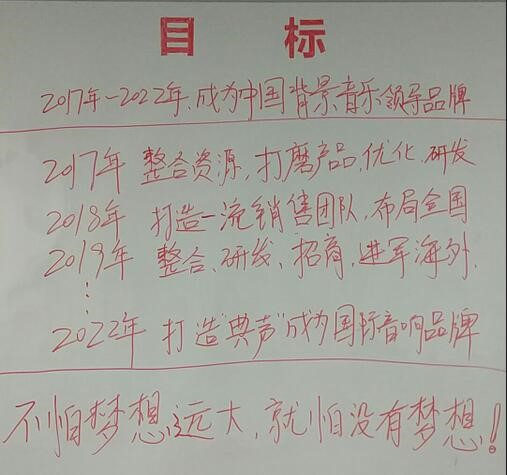 目 标
2017年-2022年,成为中国背景音乐领导品牌
2017年 整合资源,打磨产品,优化、研发
2018年 打造一流销售团队,布局全国
2019年 整合、研发、招商,进军海外.
⋮
2022年 打造"典声"成为国际音响品牌
不怕梦想远大,就怕没有梦想!